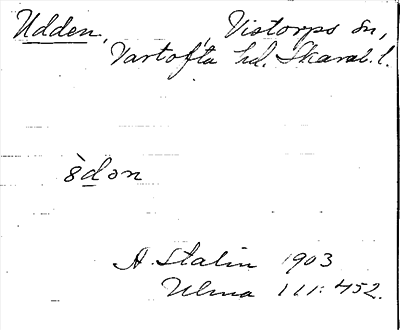 Udden, Vistorps sn,
Vartofta hd. Skarab. l.
ùdən
A. Stalin 1903
Ulma 111:452.